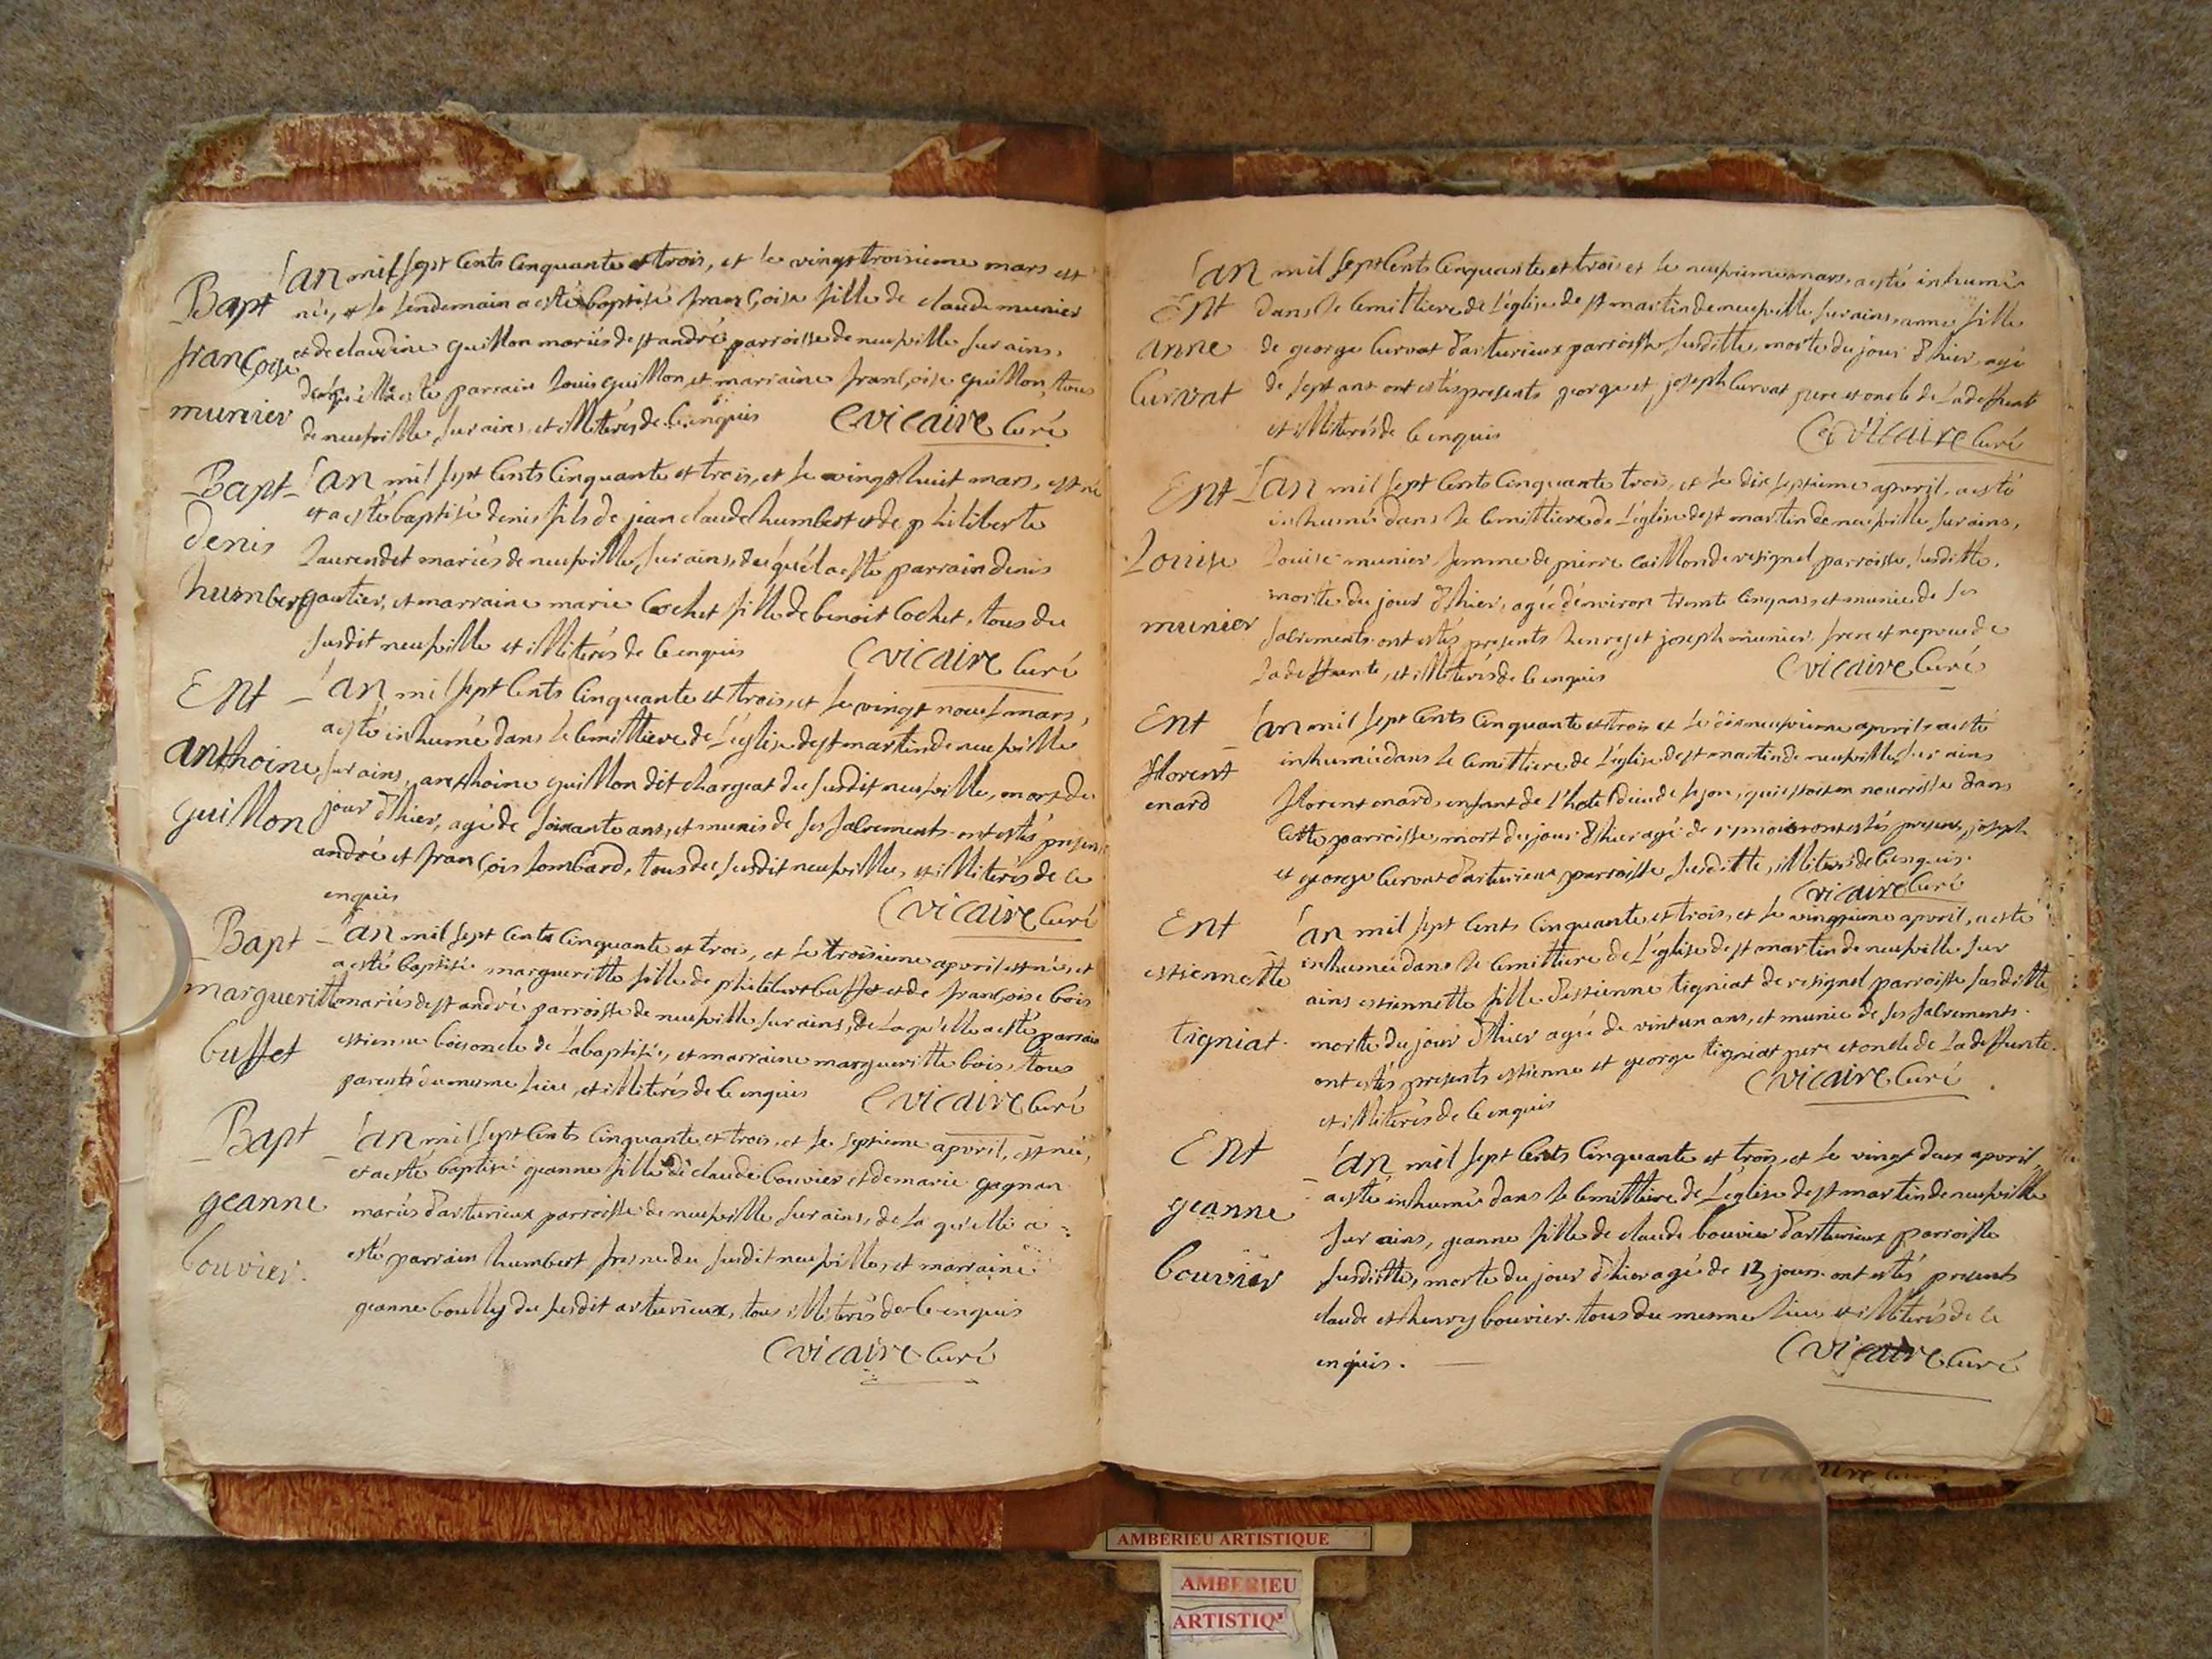 Bapt
françoise
munier
Lan mil sept cents cinquante et trois, et le vingt troisieme mars est
née, et le lendemain a esté baptisée françoise fille de claude munier
et de claudine guillon mariés de st andré parroisse de neufville sur ains,
de la qu'elle a esté parrain louis guillon, et marraine françoise guillon, tous
de neufville sur ains, et illiterés de ce enquis Cvicaire curé
Bapt
denis
humbert
Lan mil sept cents cinquante et trois, et le vingt huit mars, est né
et a esté baptisé denis fils de jean claude humbert et de philiberte
laurendet mariés de neufville sur ains, du quél a esté parrain denis
gautier, et marraine marie cochet fille de benoit cochet, tous du
susdit neufville et illiterés de ce enquis Cvicaire curé
Ent
anthoine
guillon
Lan mil sept cents cinquante et trois, et le vingt neuf mars,
a esté inhumé dans le cemittiere de l'église de st martin de neufville
sur ains, anthoine guillon dit chargeat du susdit neufville, mort du
jour d'hier, agé de soixante ans, et munis de ses sacrements. ont estés presens
andré et françois lombard, tous du susdit neufville, et illiterés de ce
enquis Cvicaire curé
Bapt
margueritte
buffet
Lan mil sept cents cinquante et trois, et le troisieme apvril est née, et
a esté baptisée margueritte fille de philibert buffet et de françoise bois
mariés de st andré parroisse de neufville sur ains, de la qu'elle a esté parrain
estienne bois oncle de la baptisée, et marraine margueritte bois, tous
parents du mesme lieu, et illiterés de ce enquis Cvicaire curé
Bapt
geanne
bouvier
Lan mil sept cents cinquante et trois, et le septieme apvril, est née,
et a esté baptisé geanne fille de claude bouvier et de marie gagnan
mariés d'arturieux parroisse de neufville sur ains, de la qu'elle a
esté parrain humbert fresne du susdit neufville, et marraine
geanne boully du susdit arturieux, tous illiterés de ce enquis
Cvicaire curé
Ent
anne
curvat
Lan mil sept cents cinquante et trois et le neufvieme mars, a esté inhumé
dans le cemittiere de l'église de st martin de neufville sur ains, anne fille
de george curvat d'arturieux parroisse susditte, morte du jour d'hier, agé
de sept ans ont estés presents george et joseph curvat pere et oncle de la deffunte
et illiterés de ce enquis Cvicaire curé
Ent
Louise
munier
Lan mil sept cents cinquante trois, et le dix septieme apvril, a esté
inhumée dans le cemittiere de l'église de st martin de neufville sur ains,
Louise munier femme de pierre caillon de resignel, parroisse susditte,
morte du jour d'hier, agée d'environ trente cinq ans, et munie de ses
sacrements. ont estés presents henry et joseph munier, frere et nepveu de
la deffunte, et illiterés de ce enquis Cvicaire curé
Ent
florent
enard
Lan mil sept cents cinquante et trois et le dix neufvieme apvril a esté
inhumé dans le cemittiere de l'église de st martin de neufville sur ains
florent enard, enfant de l'hotel dieu de lyon, qui estoit en nourrisse dans
cette parroisse, mort du jour d'hier agé de mois ont estés presens joseph
et george curvat d'arturieux parroisse susditte, illiterés de ce enquis.
Cvicaire curé
Ent
estiennette
tigniat
Lan mil sept cents cinquante et trois, et le vingtieme apvril, a esté
inhumée dans le cemittiere de l'église de st martin de neufville sur
ains estiennette fille d'estienne tigniat de resignel parroisse susditte
morte du jour d'hier agée de vint un ans, et munie de ses sacrements.
ont estés presents estienne et george tigniat pere et oncle de la deffunte.
et illiterés de ce enquis Cvicaire curé
Ent
geanne
bouvier
Lan mil sept cents cinquante et trois, et le vingt deux apvril
a esté inhumé dans le cemittiere de l'église de st martin de neufville
sur ains, geanne fille de claude bouvier d'arturieux parroisse
susditte, morte du jour d'hier agé de jours. ont estés presents
claude et henry bouvier. tous du mesme lieu et illiterés de ce
enquis. Cvicaire curé
AMBERIEU ARTISTIQUE
AMBERIEU
ARTISTIQ